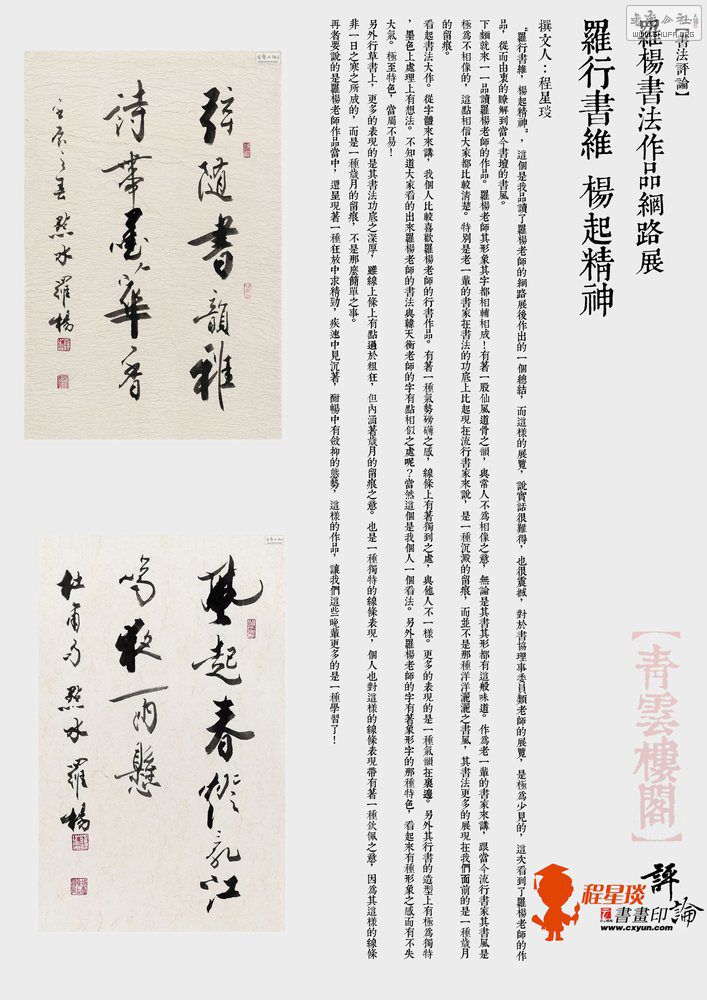 【書法評論】
羅楊書法作品網路展
羅行書維 楊起精神
撰文人：程星琰
“羅行書維，楊起精神”，這個是我品讀了羅楊老師的網路展後作出的一個總結，而這樣的展覽，說實話很難得，也很震撼，對於書協理事委員類老師的展覽，是極為少見的，這次看到了羅楊老師的作
品，從而由衷的瞭解到當今書壇的書風。
下麵就來一一品讀羅楊老師的作品。羅楊老師其形象其字都相輔相成！有著一股仙風道骨之韻，與常人不為相像之意，無論是其書其形都有這般味道。作為老一輩的書家來講，跟當今流行書家其書風是
極為不相像的，這點相信大家都比較清楚。特別是老一輩的書家在書法的功底上比起現在流行書家來說，是一種沉澱的留痕，而並不是那種洋洋灑灑之書風，其書法更多的展現在我們面前的是一種歲月
的留痕。
看起書法大作。從字體來來講，我個人比較喜歡羅楊老師的行書作品。有著一種氣勢磅礡之感，線條上有著獨到之處，與他人不一樣。更多的表現的是一種氣韻在裏邊。另外其行書的造型上有極為獨特
，墨色上處理上有想法。不知道大家看的出來羅楊老師的書法與韓天衡老師的字有點相似之處呢？當然這個是我個人一個看法。另外羅楊老師的字有著象形字的那種特色，看起來有種形象之感而有不失
大氣。極至特色，當屬不易！
另外行草書上，更多的表現的是其書法功底之深厚，雖線上條上有點過於粗狂，但內涵著歲月的留痕之意。也是一種獨特的線條表現，個人也對這樣的線條表現帶有著一種欽佩之意，因為其這樣的線條
非一日之寒之所成的，而是一種歲月的留痕，不是那麼簡單之事。
再者要說的是羅楊老師作品當中，還呈現著一種狂放中求精勁，疾速中見沉著，酣暢中有斂抑的態勢，這樣的作品，讓我們這些晚輩更多的是一種學習了！
弦随書韻雅
詩帶墨華香
壬辰之春 點水 羅楊
風起春燈亂江
鳴夜雨懸
杜甫句 點水 羅楊
【青雲樓閣】
程星琰
書畫印
評論
www.cxyun.com